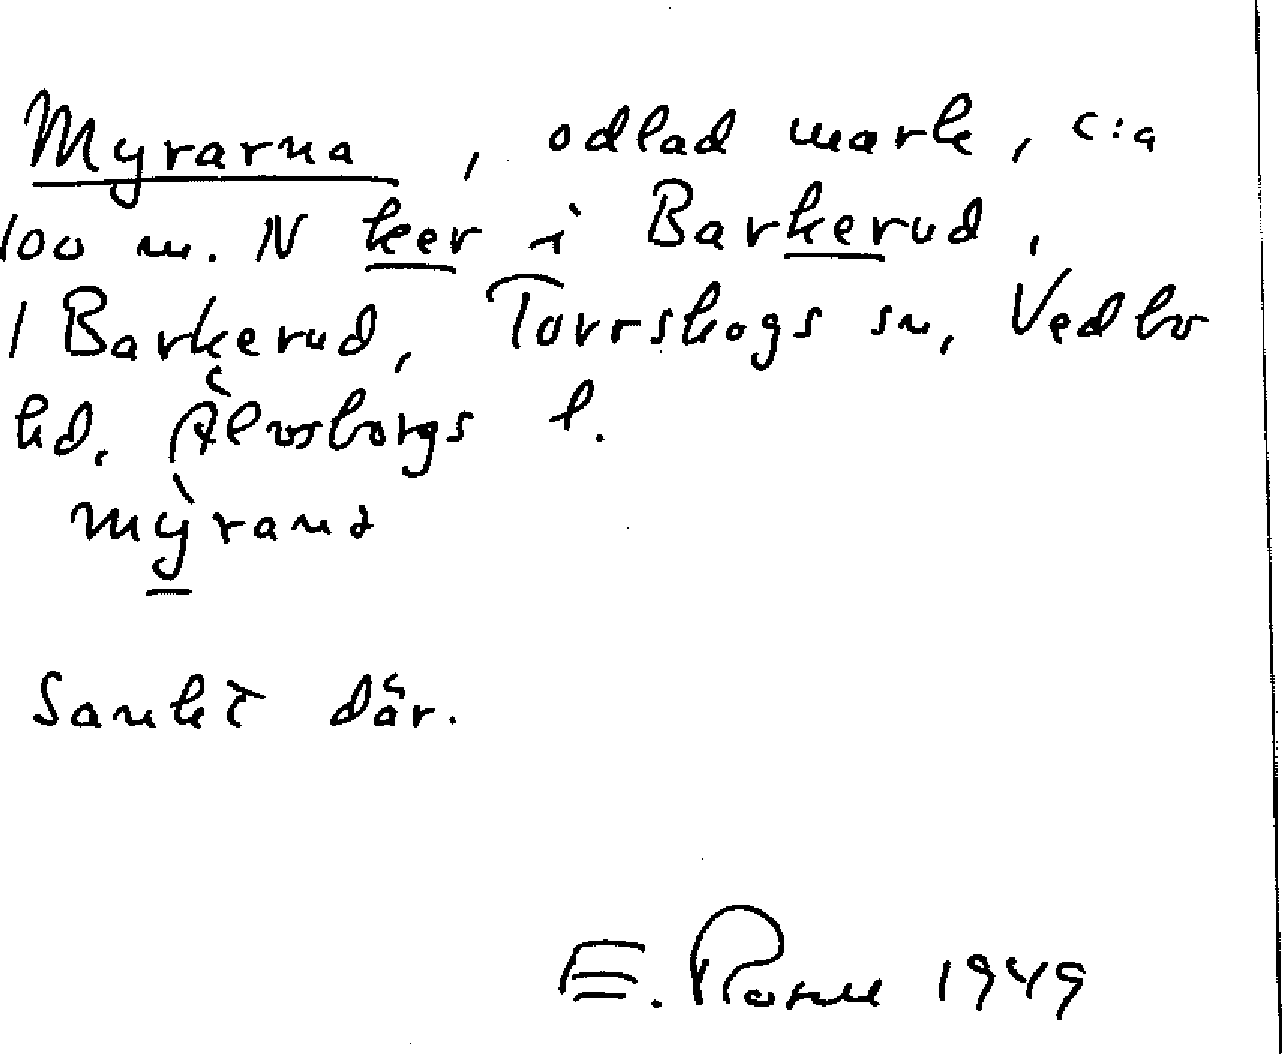 Myrarna, odlad mark, c:a
100 m. N ker i Barkerud,
1 Barkerud, Torrskogs sn, Vedbo
hd. Älvsborgs l.
mỳrana
Sankt där.
E. 1949